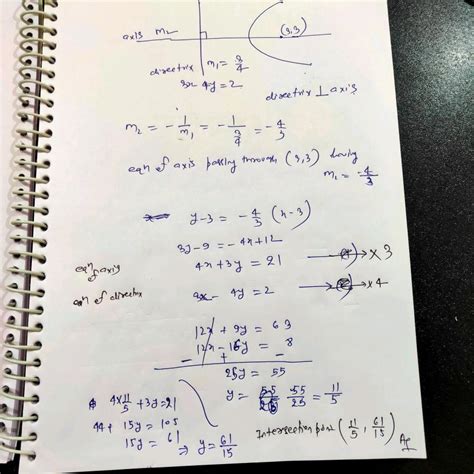 axis m₂
(3,3)
directrix m₁ = 3/4
3x 4y = 2
directrix ⊥ axis
m₂ = -1/m₁ = -1/(3/4) = -4/3
eqn of axis passing through (3,3) having
m₁ = -4/3
y-3 = -4/3 (x-3)
3y-9 = -4x+12
eqn of axis 4x+3y = 21 → ① → ×3
eqn of directrix 3x - 4y = 2 → ② → ×4
12x + 9y = 63
12x - 16y = 8
- + -
25y = 55
y = 55/25 55/25 = 11/5
4×11/5 + 3y = 21
44 + 15y = 105
15y = 61 ⇒ y = 61/15
Intersection point (11/5, 61/15) Ans